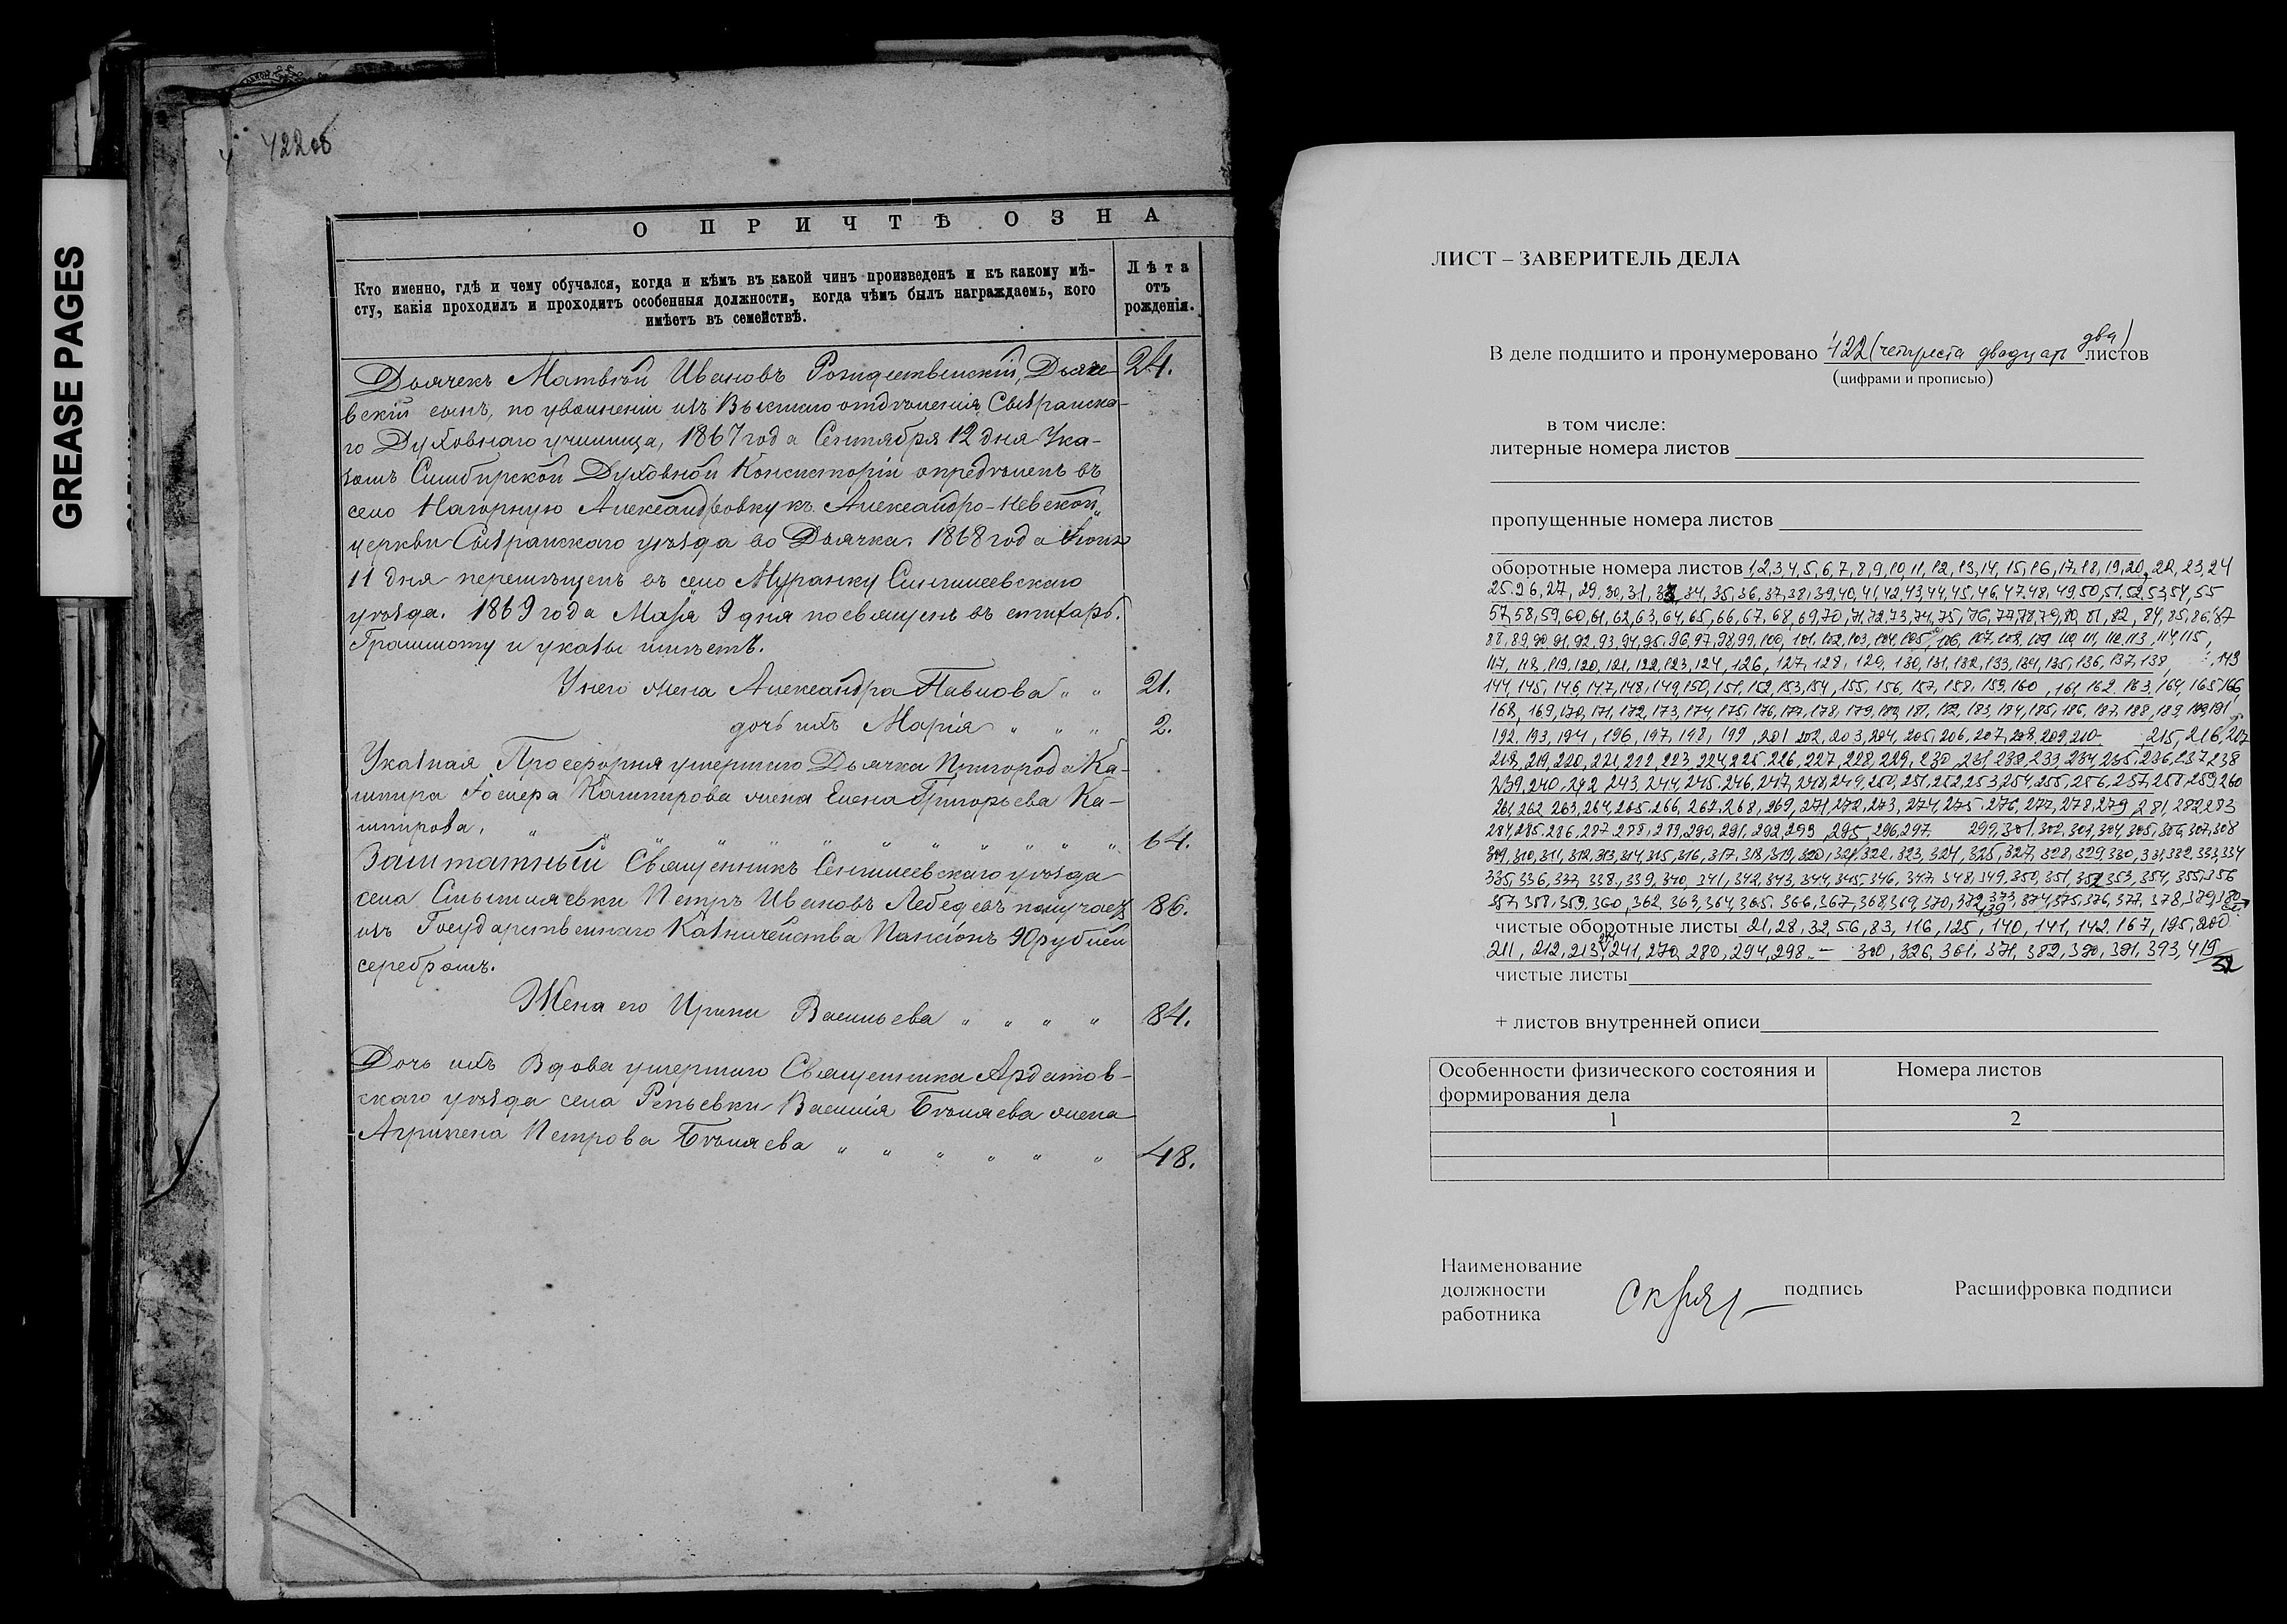 422об
GREASE PAGES
О ПРИЧТѢ ОЗНА
Кто именно, гдѣ и чему обучался, когда и кѣмъ въ какой чинъ произведенъ и къ какому мѣ-
сту, какія проходилъ и проходитъ особенныя должности, когда чѣмъ былъ награждаемъ, кого
имѣетъ въ семействѣ.
Лѣта
отъ
рожденія.
Дьячекъ Матвѣй Ивановъ Рождественскій, Дьяче- 24.
вскій сынъ, по увольненіи изъ Высшаго отдѣленія Сызранска-
го Духовнаго училища, 1867 года Сентября 12 дня Ука-
зомъ Симбирской Духовной Консисторіи опредѣленъ въ
село Нагорную Александровку къ Александро-Невской
церкви Сызранскаго уѣзда во Дьячка. 1868 года Іюня
11 дня перемѣщенъ въ село Муранку Сенгилеевскаго
уѣзда. 1869 года Маія 9 дня посвященъ въ стихарь.
Грammоту и указы имѣетъ.
У него жена Александра Павлова " " 21.
дочь ихъ Марія " " " 2.
Указная Просфорня умершаго Дьячка Пригорода Ка-
шпира Кашпирова жена Елена Григорьева Ка-
шпирова. " " " " " " " " " " 64.
Заштатный Священникъ Сенгилеевскаго уѣзда
села Петръ Ивановъ Лебедевъ получаетъ 86.
изъ Государственнаго Казначейства Пансіонъ 90 рублей
серебромъ.
Жена его Ирина Васильева " " " " 84.
Дочь ихъ Вдова умершаго Священника Ардатов-
скаго уѣзда села Репьевки Василія Бѣляева жена
Агрипена Петрова Бѣляева " " " " " " 48.
ЛИСТ – ЗАВЕРИТЕЛЬ ДЕЛА
В деле подшито и пронумеровано 422 (четыреста двадцать два) листов
(цифрами и прописью)
в том числе:
литерные номера листов
пропущенные номера листов
оборотные номера листов 1,2,3,4,5,6,7,8,9,10,11,12,13,14,15,16,17,18,19,20,22,23,24
25,26,27,29,30,31,33,34,35,36,37,38,39,40,41,42,43,44,45,46,47,48,49,50,51,52,53,54,55
57,58,59,60,61,62,63,64,65,66,67,68,69,70,71,72,73,74,75,76,77,78,79,80,81,82,84,85,86,87
88,89,90,91,92,93,94,95,96,97,98,99,100,101,102,103,104,105,106,107,108,109,110,111,112,113,114,115,
117,118,119,120,121,122,123,124,126,127,128,129,130,131,132,133,134,135,136,137,138, 143
144,145,146,147,148,149,150,151,152,153,154,155,156,157,158,159,160,161,162,163,164,165,166,
168,169,170,171,172,173,174,175,176,177,178,179,180,181,182,183,184,185,186,187,188,189,190,191
192,193,194,196,197,198,199,201,202,203,204,205,206,207,208,209,210 ,215,216,217
218,219,220,221,222,223,224,225,226,227,228,229,230,231,232,233,234,235,236,237,238
239,240,242,243,244,245,246,247,248,249,250,251,252,253,254,255,256,257,258,259,260
261,262,263,264,265,266,267,268,269,271,272,273,274,275,276,277,278,279,281,282,283
284,285,286,287,288,289,290,291,292,293,295,296,297 299,301,302,303,304,305,306,307,308
309,310,311,312,313,314,315,316,317,318,319,320,321,322,323,324,325,327,328,329,330,331,332,333,334
335,336,337,338,339,340,341,342,343,344,345,346,347,348,349,350,351,352,353,354,355,356
357,358,359,360,362,363,364,365,366,367,368,369,370,372,373,374,375,376,377,378,379,380
чистые оборотные листы 21,28,32,56,83,116,125,139,140,141,142,167,195,200
211,212,213,214,241,270,280,294,298,– 300,326,361,371,382,390,391,393,419
32
чистые листы
+ листов внутренней описи
Особенности физического состояния и
формирования дела
Номера листов
1
2
Наименование
должности
работника
подпись
Расшифровка подписи